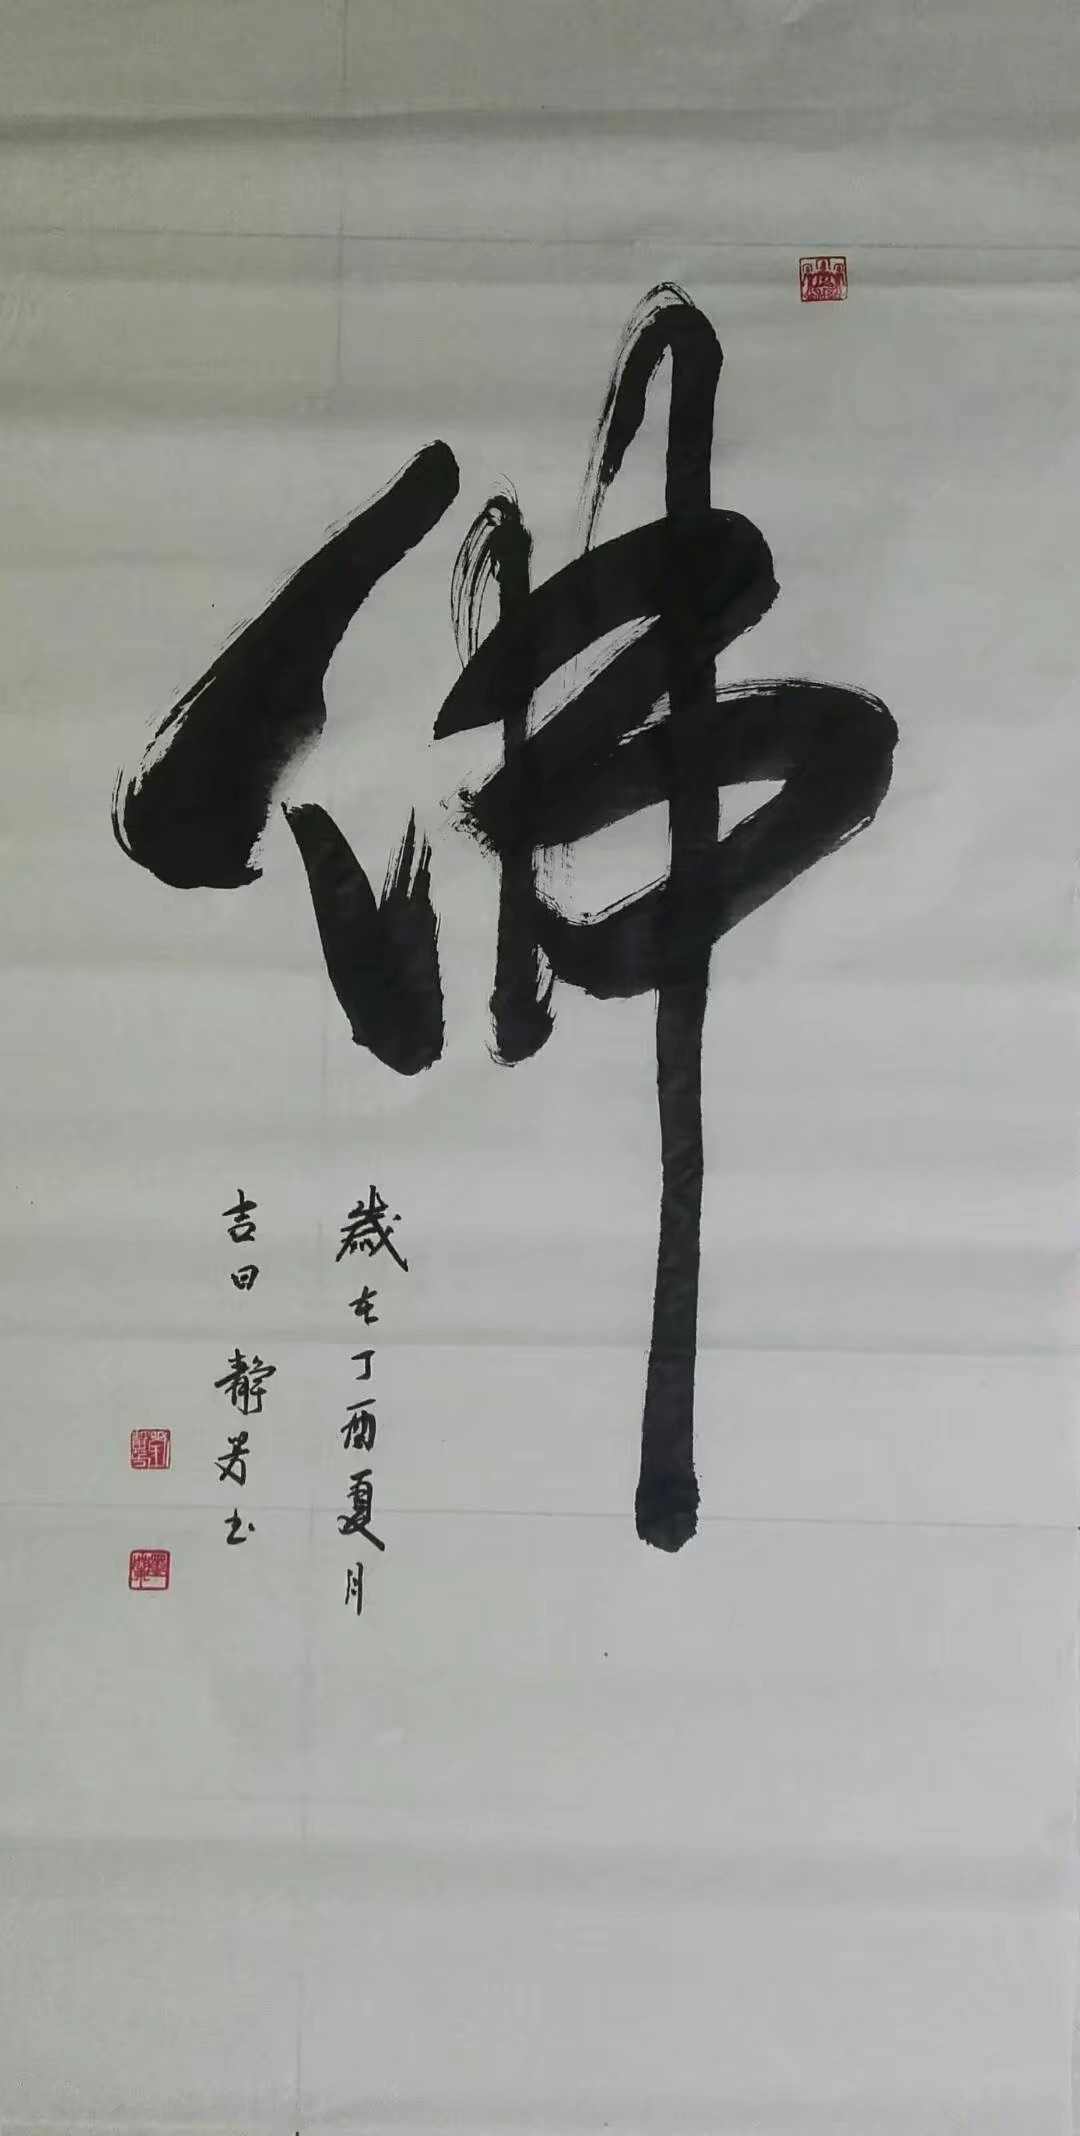 佛
歲在丁酉夏月
吉日 靜芳书